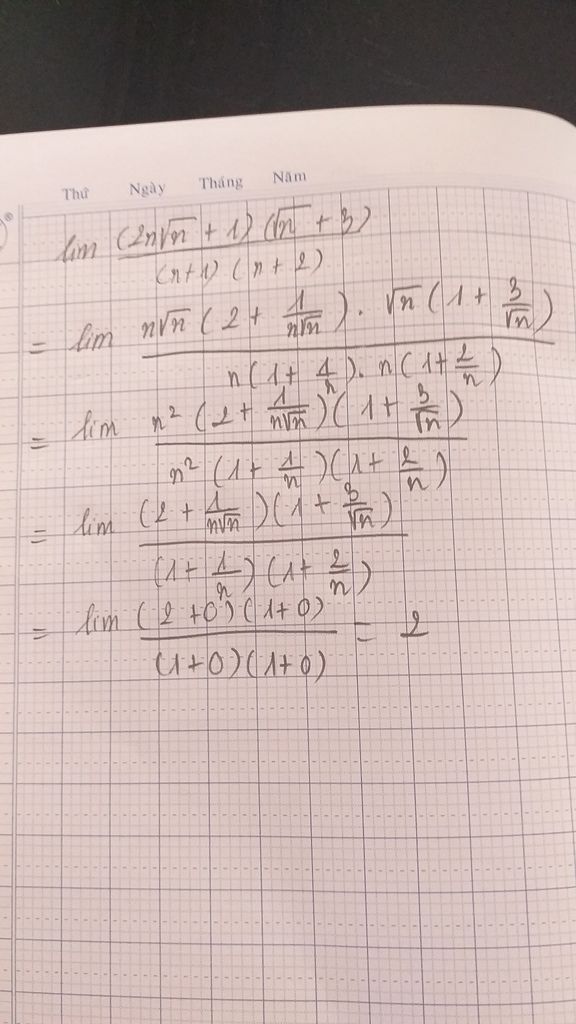 ®
Thứ Ngày Tháng Năm
lim (2n√n + 1) (√n + 3) / (n+1) (n + 2)
= lim n√n (2 + 1/n√n) . √n (1 + 3/√n) / n(1 + 1/n) . n(1 + 2/n)
= lim n² (2 + 1/n√n)(1 + 3/√n) / n² (1 + 1/n)(1 + 2/n)
= lim (2 + 1/n√n)(1 + 3/√n) / (1 + 1/n)(1 + 2/n)
= lim (2 + 0)(1+0) / (1+0)(1+0) = 2